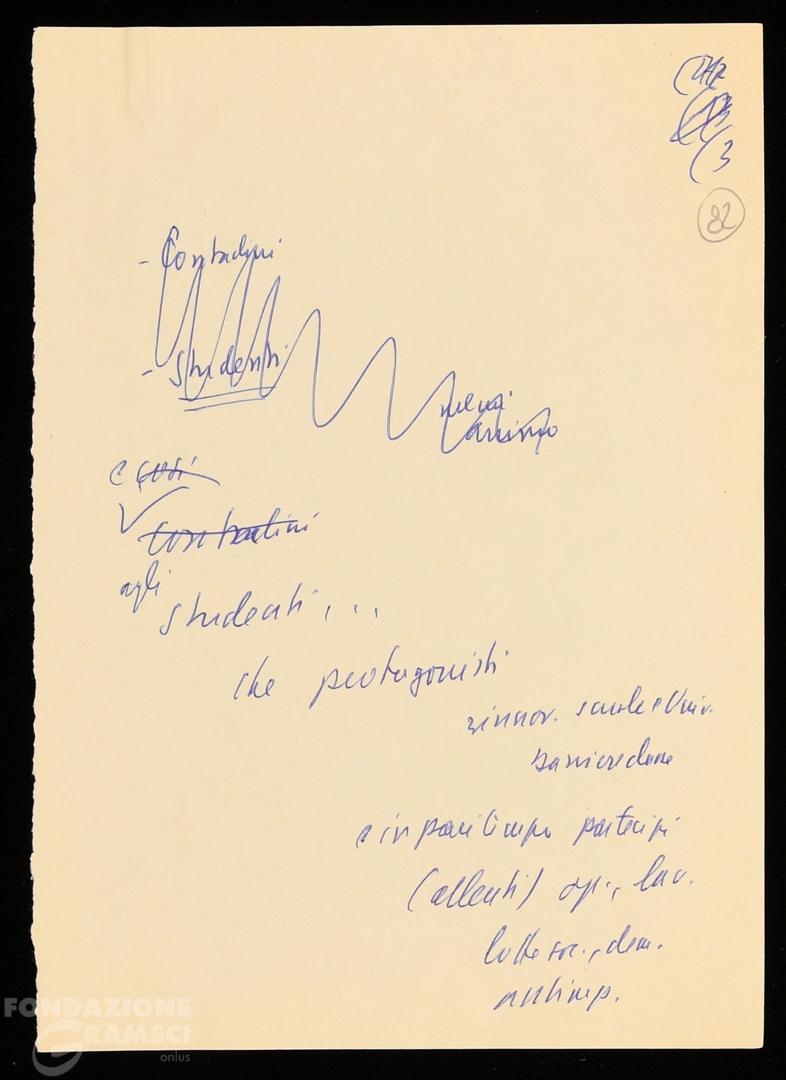 (3
82
- Contadini
- Studenti
e così
Contadini
agli
studenti, ...
che protagonisti
rinnov. scuola e Univ.
e in pari tempo partecipi
(alleati) op., lav.
lotte soc., dem.
antimp.
FONDAZIONE
GRAMSCI
onlus